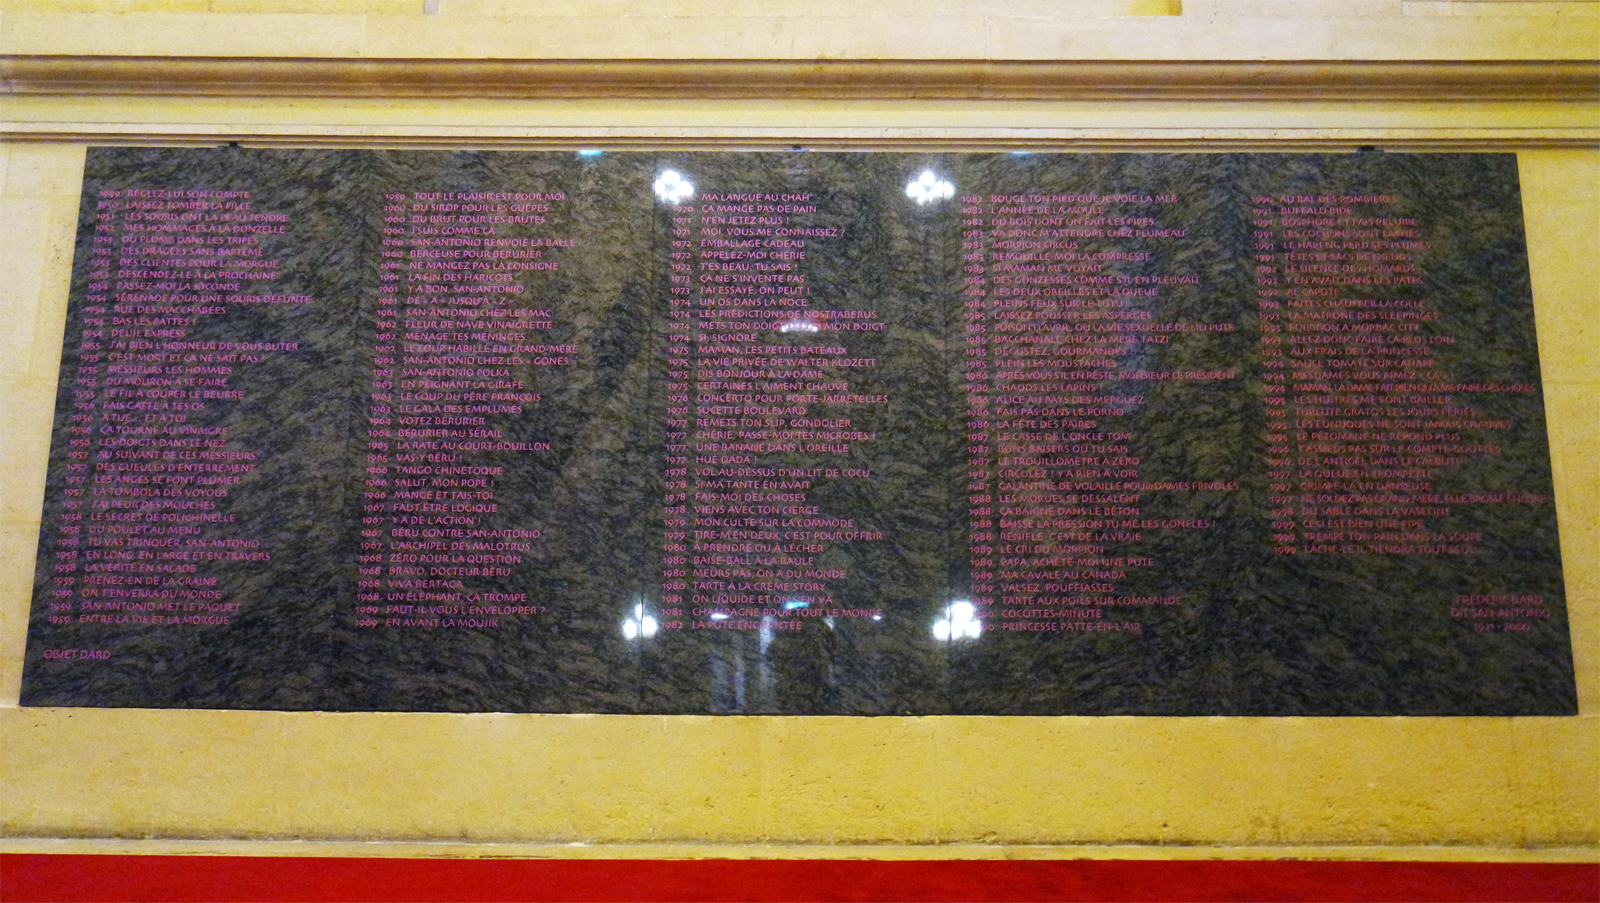 1949 RÉGLEZ-LUI SON COMPTE
1950 LAISSEZ TOMBER LA FILLE
1951 LES SOURIS ONT LA PEAU TENDRE
1952 MES HOMMAGES À LA DONZELLE
1953 DU PLOMB DANS LES TRIPES
1953 DES DRAGÉES SANS BAPTÊME
1953 DES CLIENTES POUR LA MORGUE
1953 DESCENDEZ-LE À LA PROCHAINE
1954 PASSEZ-MOI LA JOCONDE
1954 SÉRÉNADE POUR UNE SOURIS DÉFUNTE
1954 RUE DES MACCHABÉES
1954 BAS LES PATTES !
1954 DEUIL EXPRESS
1955 J'AI BIEN L'HONNEUR DE VOUS BUTER
1955 C'EST MORT ET ÇA NE SAIT PAS
1955 MESSIEURS LES HOMMES
1955 DU MOURON À SE FAIRE
1955 LE FIL À COUPER LE BEURRE
1956 FAIS GAFFE À TES OS
1956 À TUE... ET À TOI
1956 ÇA TOURNE AU VINAIGRE
1956 LES DOIGTS DANS LE NEZ
1957 AU SUIVANT DE CES MESSIEURS
1957 DES GUEULES D'ENTERREMENT
1957 LES ANGES SE FONT PLUMER
1957 LA TOMBOLA DES VOYOUS
1957 J'AI PEUR DES MOUCHES
1958 LE SECRET DE POLICHINELLE
1958 DU POULET AU MENU
1958 TU VAS TRINQUER, SAN-ANTONIO
1958 EN LONG, EN LARGE ET EN TRAVERS
1958 LA VÉRITÉ EN SALADE
1959 PRENEZ-EN DE LA GRAINE
1959 ON T'ENVERRA DU MONDE
1959 SAN-ANTONIO MET LE PAQUET
1959 ENTRE LA VIE ET LA MORGUE
OBJET DARD
1959 TOUT LE PLAISIR EST POUR MOI
1960 DU SIROP POUR LES GUÊPES
1960 DU BRUT POUR LES BRUTES
1960 J'SUIS COMME ÇA
1960 SAN-ANTONIO RENVOIE LA BALLE
1960 BERCEUSE POUR BÉRURIER
1961 NE MANGEZ PAS LA CONSIGNE
1961 LA FIN DES HARICOTS
1961 Y'A BON, SAN-ANTONIO
1961 DE « A » JUSQU'À « Z »
1961 SAN-ANTONIO CHEZ LES MAC
1962 FLEUR DE NAVE VINAIGRETTE
1962 MÉNAGE TES MÉNINGES
1962 LE LOUP HABILLÉ EN GRAND-MÈRE
1962 SAN-ANTONIO CHEZ LES « GONES »
1963 SAN-ANTONIO POLKA
1963 EN PEIGNANT LA GIRAFE
1963 LE COUP DU PÈRE FRANÇOIS
1963 LE GALA DES EMPLUMÉS
1964 VOTEZ BÉRURIER
1964 BÉRURIER AU SÉRAIL
1965 LA RATE AU COURT-BOUILLON
1965 VAS-Y BÉRU !
1966 TANGO CHINETOQUE
1966 SALUT, MON POPE !
1966 MANGE ET TAIS-TOI
1967 FAUT ÊTRE LOGIQUE
1967 Y'A DE L'ACTION !
1967 BÉRU CONTRE SAN-ANTONIO
1967 L'ARCHIPEL DES MALOTRUS
1968 ZÉRO POUR LA QUESTION
1968 BRAVO, DOCTEUR BÉRU
1968 VIVA BERTAGA
1968 UN ÉLÉPHANT, ÇA TROMPE
1969 FAUT-IL VOUS L'ENVELOPPER ?
1969 EN AVANT LA MOUJIK
MA LANGUE AU CHAH
1970 ÇA MANGE PAS DE PAIN
1971 N'EN JETEZ PLUS !
1971 MOI, VOUS ME CONNAISSEZ ?
1972 EMBALLAGE CADEAU
1972 APPELEZ-MOI CHÉRIE
1972 T'ES BEAU, TU SAIS !
1973 ÇA NE S'INVENTE PAS
1973 J'AI ESSAYÉ, ON PEUT !
1974 UN OS DANS LA NOCE
1974 LES PRÉDICTIONS DE NOSTRABÉRUS
1974 METS TON DOIGT MON DOIGT
1974 SI, SIGNORE
1975 MAMAN, LES PETITS BATEAUX
1975 LA VIE PRIVÉE DE WALTER KLOZETT
1975 DIS BONJOUR À LA DAME
1975 CERTAINES L'AIMENT CHAUVE
1976 CONCERTO POUR PORTE-JARRETELLES
1976 SUCETTE BOULEVARD
1977 REMETS TON SLIP, GONDOLIER
1977 CHÉRIE, PASSE-MOI TES MICROBES !
1977 UNE BANANE DANS L'OREILLE
1977 HUE DADA !
1978 VOL AU-DESSUS D'UN LIT DE COCU
1978 SI MA TANTE EN AVAIT
1978 FAIS-MOI DES CHOSES
1978 VIENS AVEC TON CIERGE
1979 MON CULTE SUR LA COMMODE
1979 TIRE-M'EN DEUX, C'EST POUR OFFRIR
1980 À PRENDRE OU À LÉCHER
1980 BAISE-BALL À LA BAULE
1980 MEURS PAS, ON A DU MONDE
1980 TARTE À LA CRÈME STORY
1981 ON LIQUIDE ET ON S'EN VA
1981 CHAMPAGNE POUR TOUT LE MONDE
1982 LA PUTE ENCHANTÉE
1982 BOUGE TON PIED QUE JE VOIE LA MER
1982 L'ANNÉE DE LA MOULE
1982 DU BOIS DONT ON FAIT LES PIPES
1983 VA DONC M'ATTENDRE CHEZ PLUMEAU
1983 MORPION CIRCUS
1983 REMOUILLE-MOI LA COMPRESSE
1983 SI MAMAN ME VOYAIT
1984 DES GONZESSES COMME S'IL EN PLEUVAIT
1984 LES DEUX OREILLES ET LA QUEUE
1984 PLEINS FEUX SUR LE TUTU
1985 LAISSEZ POUSSER LES ASPERGES
1985 POISON D'AVRIL, OU LA VIE SEXUELLE DE LILI PUTE
1985 BACCHANALE CHEZ LA MÈRE TATZI
1985 DÉGUSTEZ, GOURMANDES !
1985 PLEIN LES MOUSTACHES
1986 APRÈS VOUS S'IL EN RESTE, MONSIEUR LE PRÉSIDENT
1986 CHAUDS LES LAPINS
1986 ALICE AU PAYS DES MERGUEZ
1986 FAIS PAS DANS LE PORNO
1986 LA FÊTE DES PAIRES
1987 LE CASSE DE L'ONCLE TOM
1987 BONS BAISERS OÙ TU SAIS
1987 LE TROUILLOMÈTRE À ZÉRO
1987 CIRCULEZ ! Y'A RIEN À VOIR
1987 GALANTINE DE VOLAILLE POUR DAMES FRIVOLES
1988 LES MORUES SE DESSALENT
1988 ÇA BAIGNE DANS LE BÉTON
1988 BAISSE LA PRESSION TU ME LES GONFLES !
1988 RENIFLE, C'EST DE LA VRAIE
1989 LE CRI DU MORPION
1989 PAPA, ACHÈTE-MOI UNE PUTE
1989 MA CAVALE AU CANADA
1989 VALSEZ, POUFFIASSES
1989 TARTE AUX POILS SUR COMMANDE
COCOTTES-MINUTE
PRINCESSE PATTE-EN-L'AIR
1990 AU BAL DES ROMBIÈRES
1991 BUFFALO BIDE
1991 BOSPHORE ET FAIS RELUIRE
1991 LES COCHONS SONT LÂCHÉS
1991 LE HARENG PERD SES PLUMES
1991 TÊTES ET SACS DE NŒUDS
1992 LE SILENCE DES HOMARDS
1992 Y EN AVAIT DANS LES PÂTES
1992 AL CAPOTE
1993 FAITES CHAUFFER LA COLLE
1993 LA MATRONE DES SLEEPINGES
1993 FOIRIDON À MORBAC CITY
1993 ALLEZ DONC FAIRE ÇA PLUS LOIN
1993 AUX FRAIS DE LA PRINCESSE
1994 SAUCE TOMATE SUR CANAPÉ
1994 MESDAMES VOUS AIMEZ « ÇA »
1994 MAMAN, LA DAME FAIT RIEN QU'À ME FAIRE DES CHOSES
1995 LES HUÎTRES ME FONT BÂILLER
1995 TURLUTE GRATOS LES JOURS FÉRIÉS
1995 LES EUNUQUES NE SONT JAMAIS CHAUVES
1995 LE PÉTOMANE NE RÉPOND PLUS
1996 T'ASSIEDS PAS SUR LE COMPTE-GOUTTES
1996 DE L'ANTIGEL DANS LE CALBUTE
1997 LA QUEUE EN TROMPETTE
1997 GRIMPE-LA EN DANSEUSE
1997 NE SOLDEZ PAS GRAND-MÈRE, ELLE BROSSE ENCORE
1998 DU SABLE DANS LA VASELINE
1999 CECI EST BIEN UNE PIPE
1999 TREMPE TON PAIN DANS LA SOUPE
1999 LÂCHE-LE, IL TIENDRA TOUT SEUL
FRÉDÉRIC DARD
DIT SAN-ANTONIO
1921 - 2000